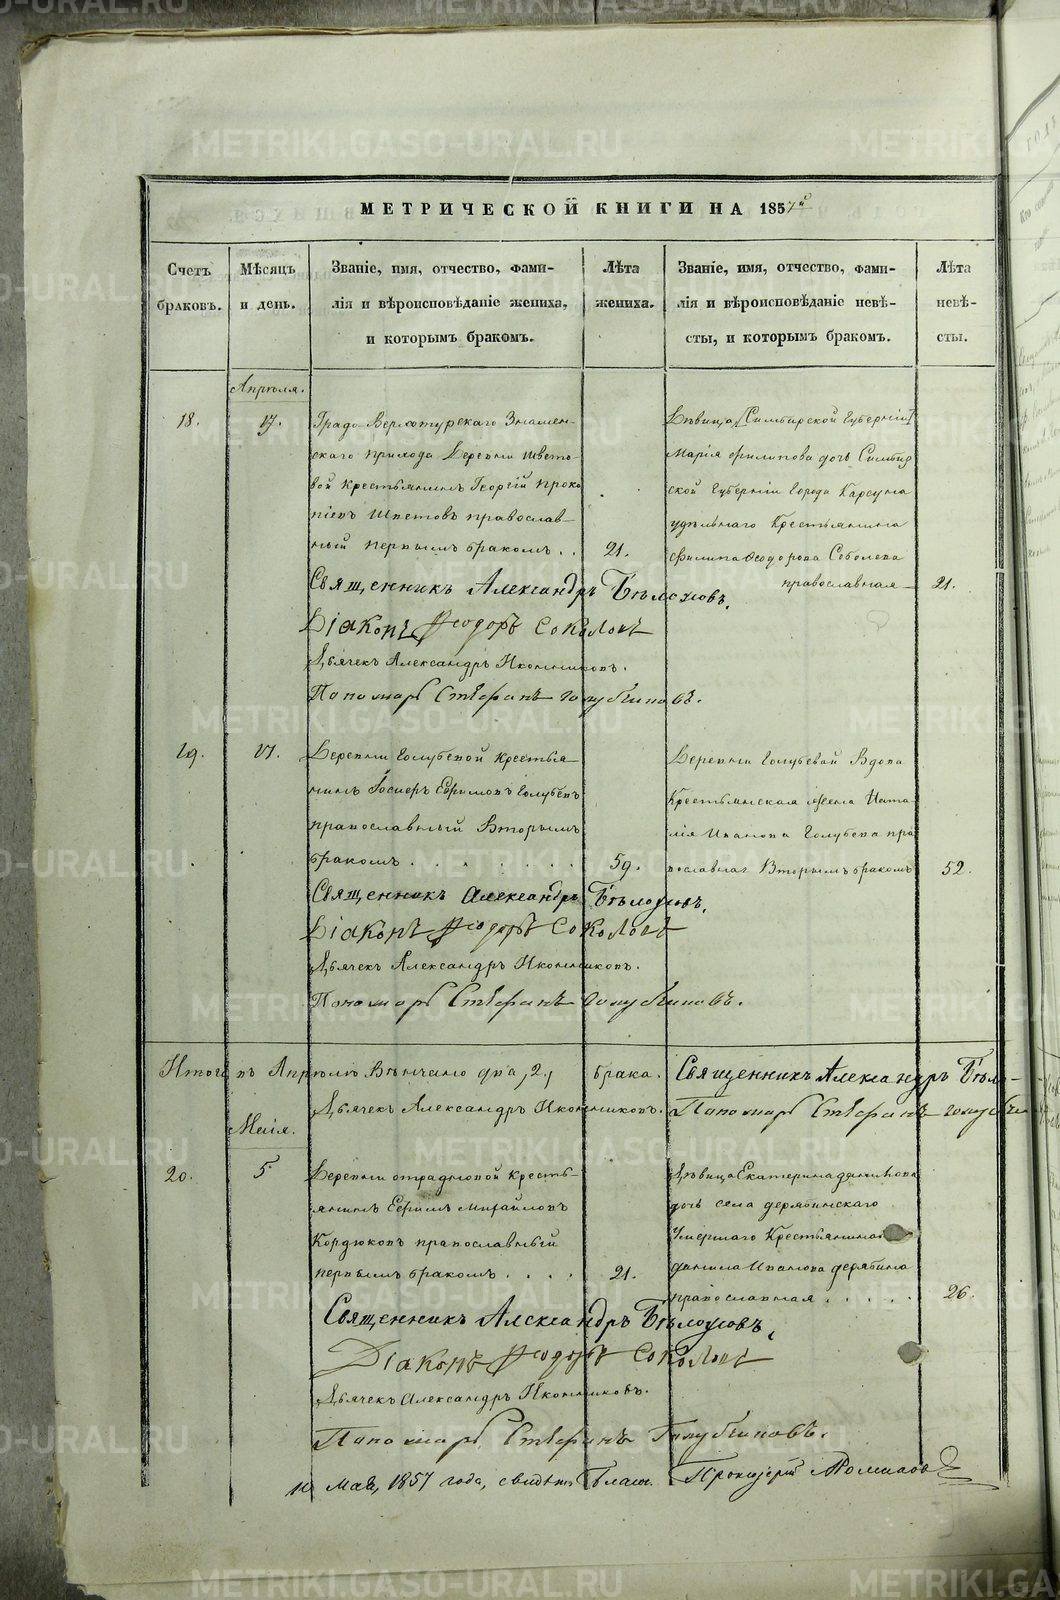 МЕТРИЧЕСКОЙ КНИГИ НА 1857й
Счетъ браковъ.
Мѣсяцъ и день.
Званіе, имя, отчество, фами-
лія и вѣроисповѣданіе жениха,
и которымъ бракомъ.
Лѣта
жениха.
Званіе, имя, отчество, фами-
лія и вѣроисповѣданіе невѣ-
сты, и которымъ бракомъ.
Лѣта
невѣ-
сты.
Апрѣля.
18.
17.
Градо Верхотурскаго Знамен-
скаго прихода Деревни Швето-
вой Крестьянинъ Георгій Проко
піевъ Шветовъ православ-
ный первымъ бракомъ . .
21.
Дѣвица [Симбирской Губерніи]
Марія Филипова дочь Симбир
ской Губерніи Города Карсуна
удѣльнаго Крестьянина
Филипа Феодорова Соболева
православная
21.
Священникъ Александръ Бѣлоусовъ.
Діаконъ Феодоръ Соколовъ
Дьячекъ Александръ Иконниковъ.
Пономарь Стефанъ Голубчиковъ.
19.
17.
Деревни Голубевой крестья-
нинъ Ефимовъ Голубевъ
православный Вторымъ
бракомъ . . . . . . . .
59.
Деревни Голубевой Вдова
Крестьянская жена Ната
лія Иванова Голубева пра
вославная Вторымъ бракомъ
52.
Священникъ Александръ Бѣлоусовъ.
Діаконъ Феодоръ Соколовъ
Дьячекъ Александръ Иконниковъ.
Пономарь Стефанъ Голубчиковъ.
Итого въ Апрѣлѣ Вѣнчано два, 2, брака.
Священникъ Александръ Бѣло-
Дьячекъ Александръ Иконниковъ.
Пономарь Стефанъ Голубчи
Маія.
20.
5
Деревни отрадновой Кресть-
янинъ Ефимъ Михайловъ
Кордюковъ православный
первымъ бракомъ . . . .
21.
Дѣвица Екатерина данилова
дочь села дерябинскаго
Умершаго Крестьянина
данила Иванова дерябина
православная . . . . .
26.
Священникъ Александръ Бѣлоусовъ.
Діаконъ Феодоръ Соколовъ
Дьячекъ Александръ Иконниковъ.
Пономарь Стефанъ Голубчиковъ.
Мая, 1857 года, свидѣт. Благ. Протоіерей
METRIKI.GASO-URAL.RU